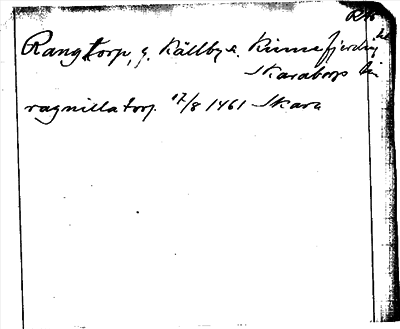 RAp
Rangtorp, g. Källby s. Kinnefjerding
Skaraborgs län
ragnillatorp. 17/8 1461 Skara